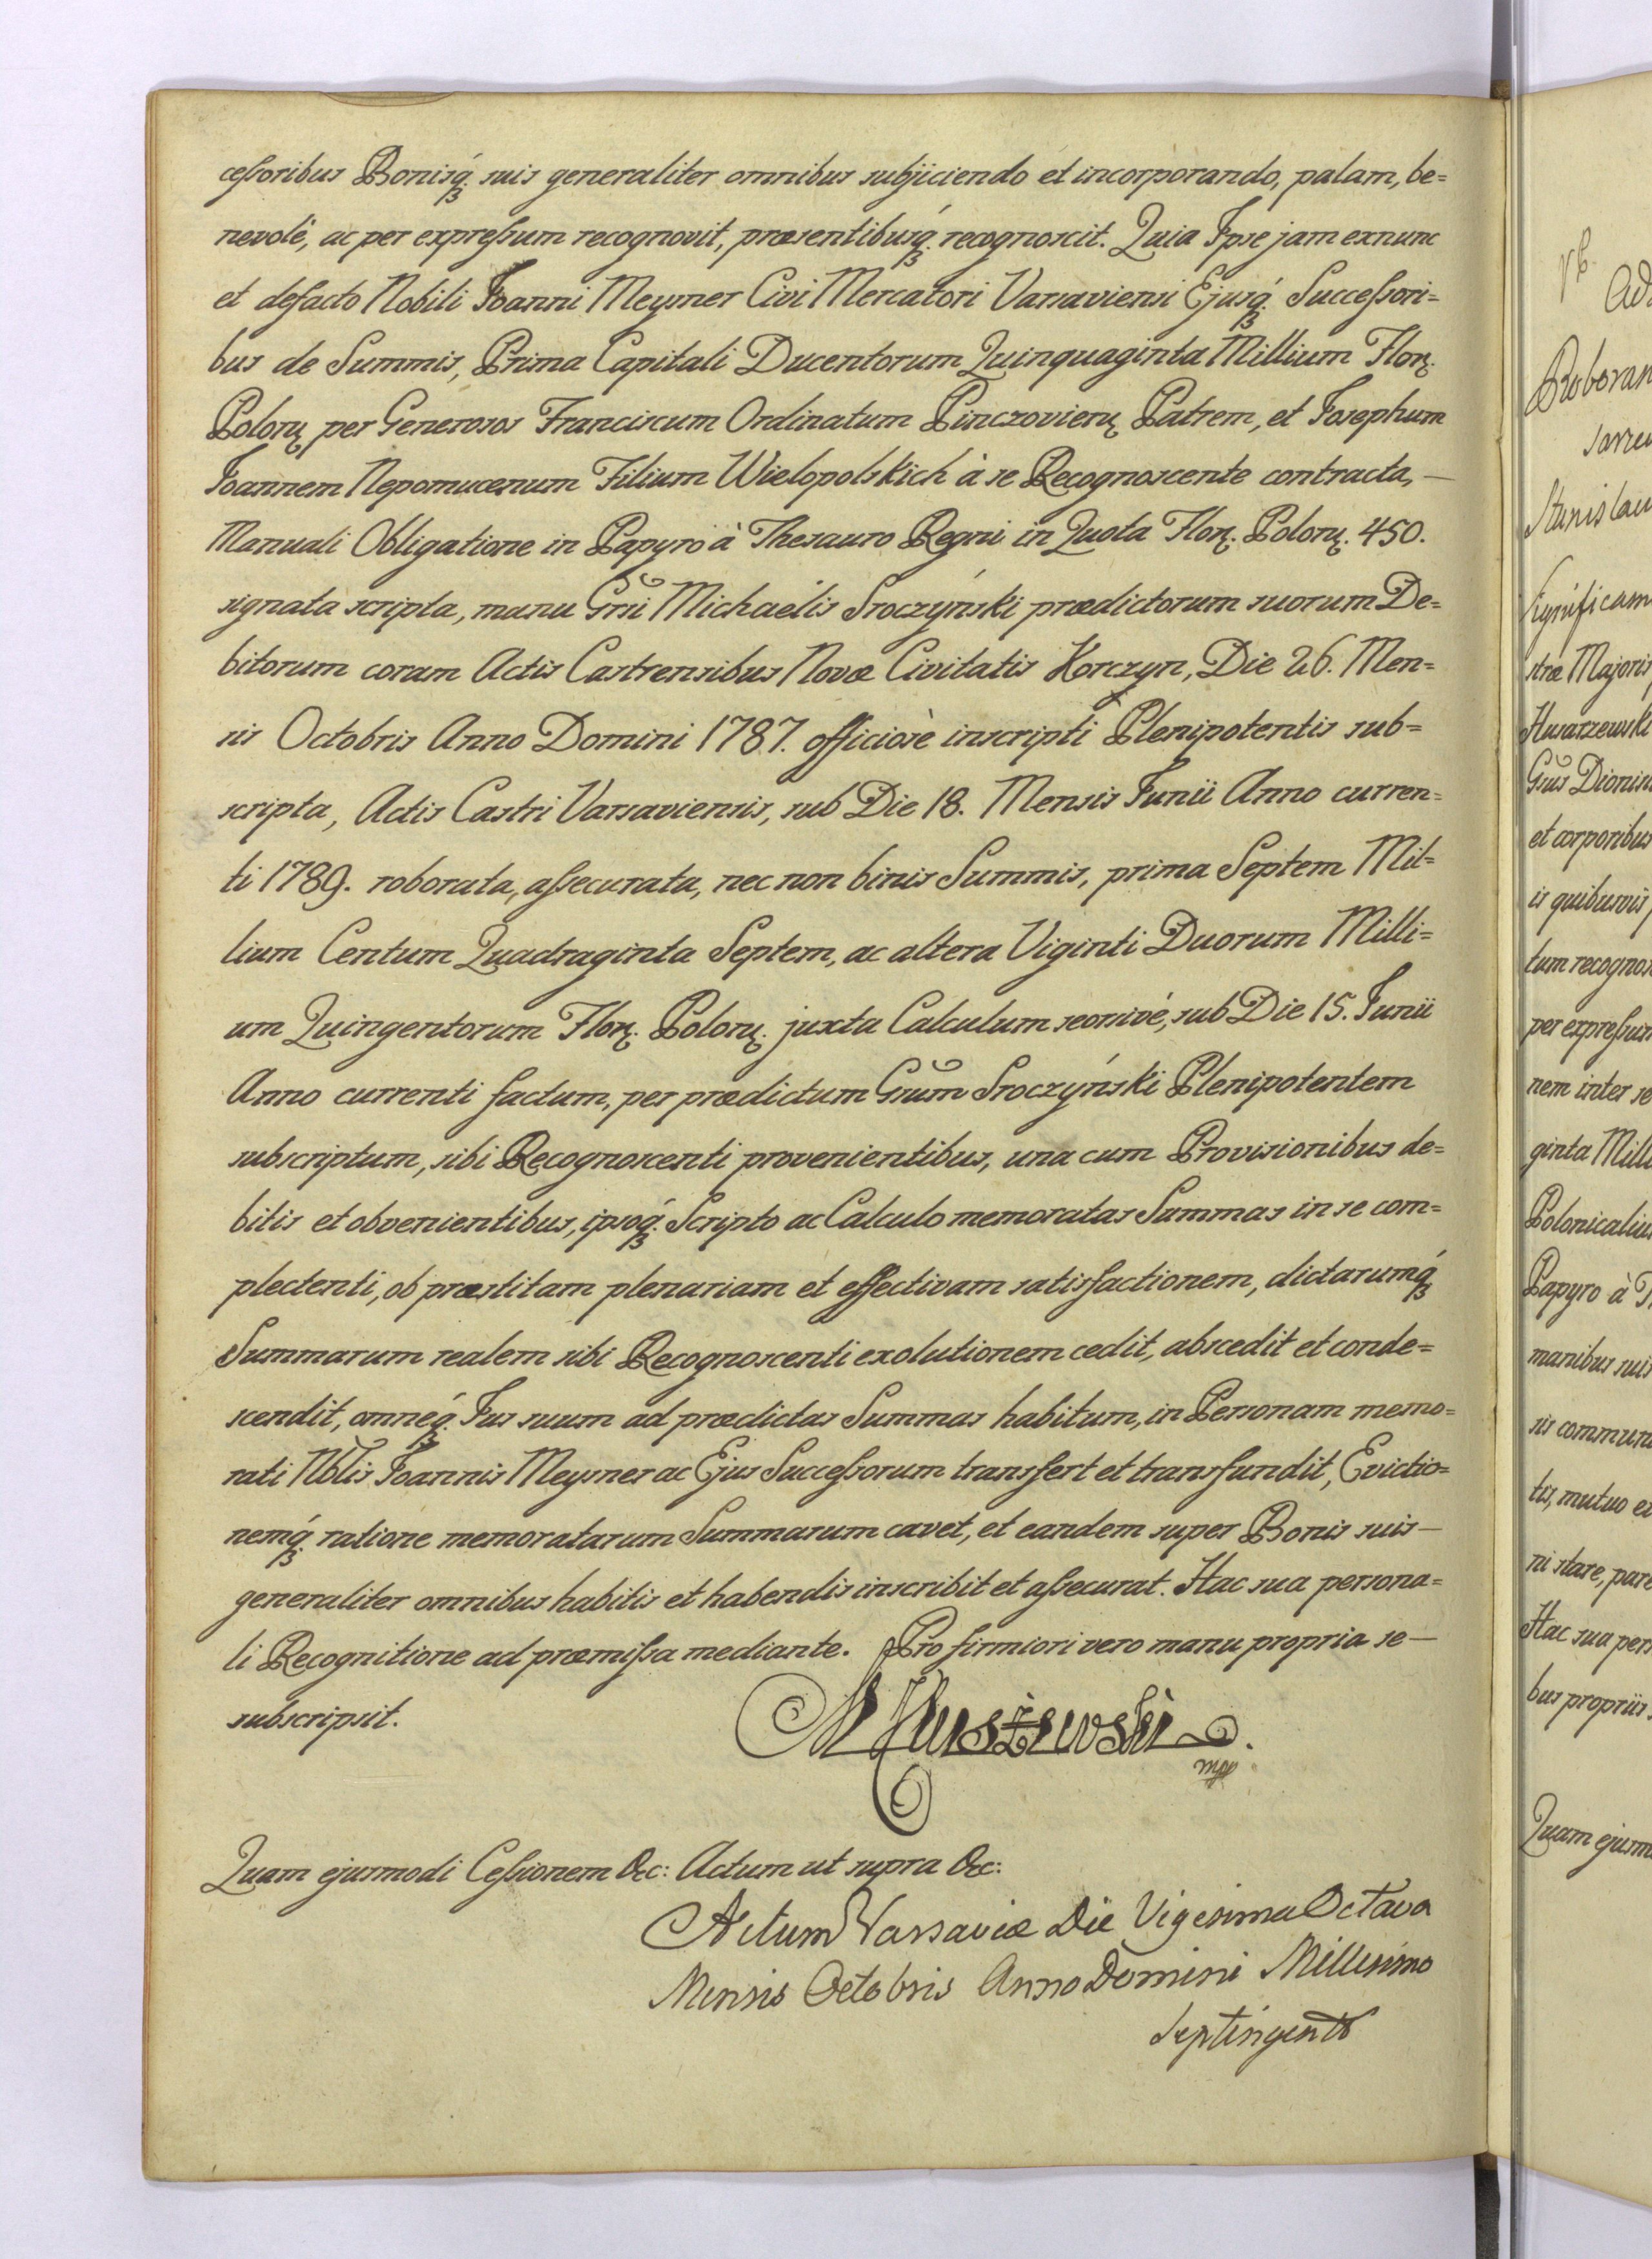 cessoribus Bonisq́ꝫ suis generaliter omnibus subjiciendo et incorporando, palam, be=
nevolè, ac per expressum recognovit, præsentibusq́ꝫ recognoscit. Quia Ipse jam exnunc
et defacto Nobili Joanni Meysner Civi Mercatori Varsaviensi Ejusq́ꝫ Successori=
bus de Summis, Prima Capitali Ducentorum Quinquaginta Millium Florꝝ.
Polonꝝ per Generosos Franciscum Ordinatum Pinczovienꝝ Patrem, et Josephum
Joannem Nepomucenum Filium Wielopolskich à se Recognoscente contracta, —
Manuali Obligatione in Papyro à Thesauro Regni in Quota Florꝝ. Polonꝝ. 450.
signata scripta, manu Grsi Michaelis Sroczyński prædictorum suorum De=
bitorum coram Actis Castrensibus Novæ Civitatis Korczyn, Die 26. Men=
sis Octobris Anno Domini 1787. officiosè inscripti Plenipotentis sub=
scripta, Actis Castri Varsaviensis, sub Die 18. Mensis Junii Anno curren=
ti 1789. roborata, assecurata, nec non binis Summis, prima Septem Mil=
lium Centum Quadraginta Septem, ac altera Viginti Duorum Milli=
um Quingentorum Florꝝ. Polonꝝ. juxta Calculum seorsivé, sub Die 15. Junii
Anno currenti factum, per prædictum Grsum Sroczyński Plenipotentem
subscriptum, sibi Recognoscenti provenientibus, una cum Provisionibus de=
bitis et obvenientibus, ipsoq́ꝫ Scripto ac Calculo memoratas Summas in se com=
plectenti, ob præstitam plenariam et effectivam satisfactionem, dictarumq́ꝫ
Summarum realem sibi Recognoscenti exolutionem cedit, abscedit et conde=
scendit, omneq́ꝫ Jus suum ad prædictas Summas habitum, in Personam memo=
rati Nblis Joannis Meysner ac Ejus Successorum transfert et transfundit, Evictio=
nemq́ꝫ ratione memoratarum Summarum cavet, et eandem super Bonis suis —
generaliter omnibus habitis et habendis inscribit et assecurat. Hac sua persona=
li Recognitione ad præmissa mediante. Pro firmiori vero manu propria se —
subscripsit.
mpp
Quam ejusmodi Cessionem &c: Actum ut supra &c:
Actum Varsaviæ Die Vigesima Octava
Mensis Octobris Anno Domini Millesimo
Septingento
Ad
Roboran
Stanislau
Significam
stræ Majoris
Husarzewski
Gsus Dionis
et corporibus
is quibusvis
tum recognos
per expressum
nem inter se
ginta Milli
Polonicaliu
Papyro à T
manibus suis
sis commun
tis, mutuo et
ni stare, pare
Hac sua pers
bus propriis
Quam ejusm